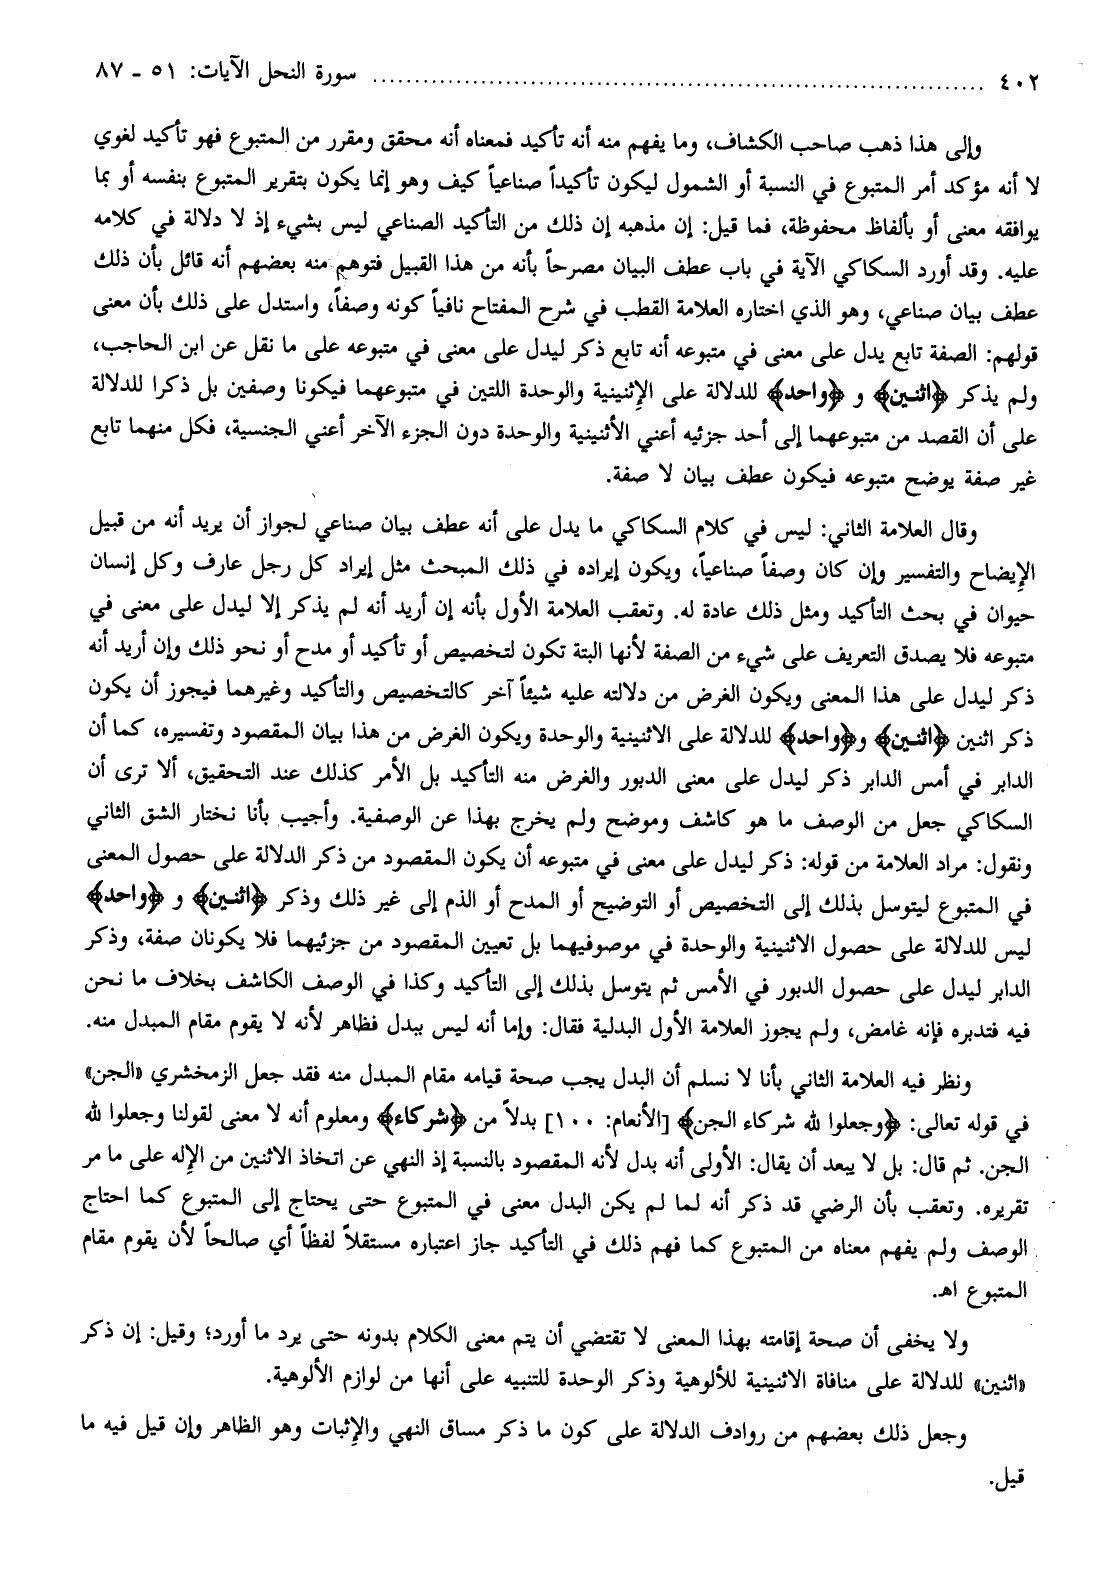 ٤٠٢ ........................................ سورة النحل الآيات: ٥١ - ٨٧
وإلى هذا ذهب صاحب الكشاف، وما يفهم منه أنه تأكيد فمعناه أنه محقق ومقرر من المتبوع فهو تأكيد لغوي
لا أنه مؤكد أمر المتبوع في النسبة أو الشمول ليكون تأكيداً صناعياً كيف وهو إنما يكون بتقرير المتبوع بنفسه أو بما
يوافقه معنى أو بألفاظ محفوظة، فما قيل: إن مذهبه إن ذلك من التأكيد الصناعي ليس بشيء إذ لا دلالة في كلامه
عليه. وقد أورد السكاكي الآية في باب عطف البيان مصرحاً بأنه من هذا القبيل فتوهم منه بعضهم أنه قائل بأن ذلك
عطف بيان صناعي، وهو الذي اختاره العلامة القطب في شرح المفتاح نافياً كونه وصفاً، واستدل على ذلك بأن معنى
قولهم: الصفة تابع يدل على معنى في متبوعه أنه تابع ذكر ليدل على معنى في متبوعه على ما نقل عن ابن الحاجب،
ولم يذكر ﴿اثنين﴾ و ﴿واحد﴾ للدلالة على الإثنينية والوحدة اللتين في متبوعهما فيكونا وصفين بل ذكرا للدلالة
على أن القصد من متبوعهما إلى أحد جزئيه أعني الأثنينية والوحدة دون الجزء الآخر أعني الجنسية، فكل منهما تابع
غير صفة يوضح متبوعه فيكون عطف بيان لا صفة.
وقال العلامة الثاني: ليس في كلام السكاكي ما يدل على أنه عطف بيان صناعي لجواز أن يريد أنه من قبيل
الإيضاح والتفسير وإن كان وصفاً صناعياً، ويكون إيراده في ذلك المبحث مثل إيراد كل رجل عارف وكل إنسان
حيوان في بحث التأكيد ومثل ذلك عادة له. وتعقب العلامة الأول بأنه إن أريد أنه لم يذكر إلا ليدل على معنى في
متبوعه فلا يصدق التعريف على شيء من الصفة لأنها البتة تكون لتخصيص أو تأكيد أو مدح أو نحو ذلك وإن أريد أنه
ذكر ليدل على هذا المعنى ويكون الغرض من دلالته عليه شيئاً آخر كالتخصيص والتأكيد وغيرهما فيجوز أن يكون
ذكر اثنين ﴿اثنين﴾ و﴿واحد﴾ للدلالة على الاثنينية والوحدة ويكون الغرض من هذا بيان المقصود وتفسيره، كما أن
الدابر في أمس الدابر ذكر ليدل على معنى الدبور والغرض منه التأكيد بل الأمر كذلك عند التحقيق، ألا ترى أن
السكاكي جعل من الوصف ما هو كاشف وموضح ولم يخرج بهذا عن الوصفية. وأجيب بأنا نختار الشق الثاني
ونقول: مراد العلامة من قوله: ذكر ليدل على معنى في متبوعه أن يكون المقصود من ذكر الدلالة على حصول المعنى
في المتبوع ليتوسل بذلك إلى التخصيص أو التوضيح أو المدح أو الذم إلى غير ذلك وذكر ﴿اثنين﴾ و ﴿واحد﴾
ليس للدلالة على حصول الاثنينية والوحدة في موصوفيهما بل تعيين المقصود من جزئيهما فلا يكونان صفة، وذكر
الدابر ليدل على حصول الدبور في الأمس ثم يتوسل بذلك إلى التأكيد وكذا في الوصف الكاشف بخلاف ما نحن
فيه فتدبره فإنه غامض، ولم يجوز العلامة الأول البدلية فقال: وإما أنه ليس ببدل فظاهر لأنه لا يقوم مقام المبدل منه.
ونظر فيه العلامة الثاني بأنا لا نسلم أن البدل يجب صحة قيامه مقام المبدل منه فقد جعل الزمخشري «الجن»
في قوله تعالى: ﴿وجعلوا لله شركاء الجن﴾ [الأنعام: ١٠٠] بدلاً من ﴿شركاء﴾ ومعلوم أنه لا معنى لقولنا وجعلوا لله
الجن. ثم قال: بل لا يبعد أن يقال: الأولى أنه بدل لأنه المقصود بالنسبة إذ النهي عن اتخاذ الاثنين من الإله على ما مر
تقريره. وتعقب بأن الرضي قد ذكر أنه لما لم يكن البدل معنى في المتبوع حتى يحتاج إلى المتبوع كما احتاج
الوصف ولم يفهم معناه من المتبوع كما فهم ذلك في التأكيد جاز اعتباره مستقلاً لفظاً أي صالحاً لأن يقوم مقام
المتبوع اهـ.
ولا يخفى أن صحة إقامته بهذا المعنى لا تقتضي أن يتم معنى الكلام بدونه حتى يرد ما أورد؛ وقيل: إن ذكر
«اثنين» للدلالة على منافاة الاثنينية للألوهية وذكر الوحدة للتنبيه على أنها من لوازم الألوهية.
وجعل ذلك بعضهم من روادف الدلالة على كون ما ذكر مساق النهي والإثبات وهو الظاهر وإن قيل فيه ما
قيل.